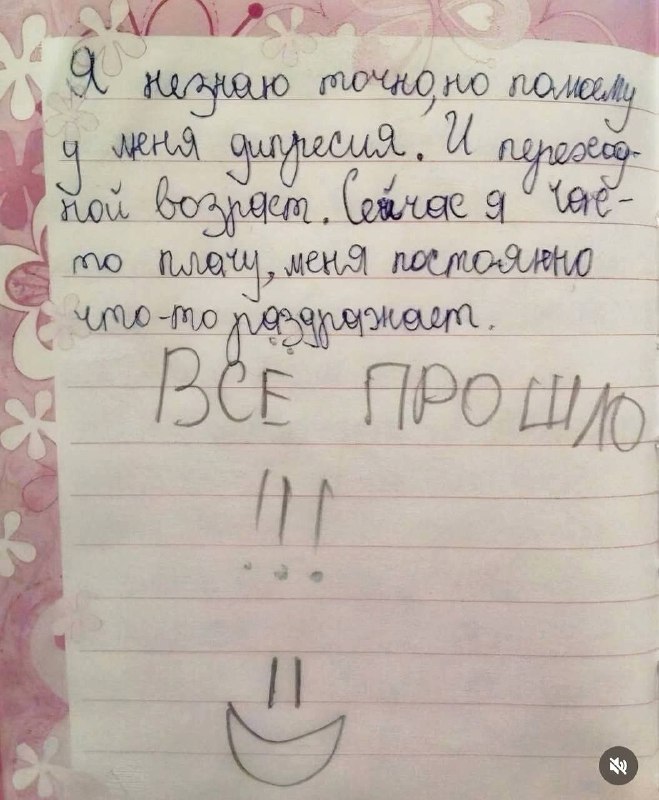 Я незнаю точно, но помоему
у меня дипресия. И переход-
ной возраст. Сейчас я чаё-
то плачу, меня постоянно
что-то раздражает.
ВСЁ ПРОШЛО
!!!